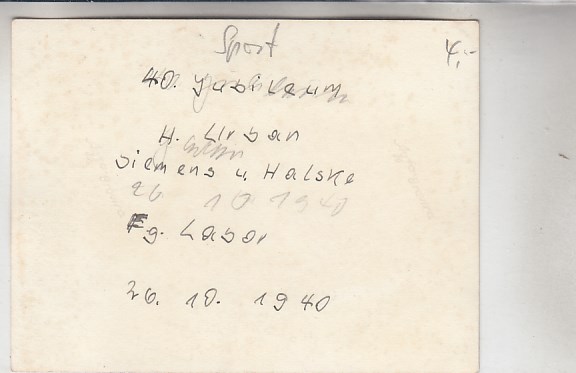 Sport
4,-
40. Jubiläum
H. Urban
Siemens u. Halske
26 10 1940
Fg. Labor
26. 10. 1940